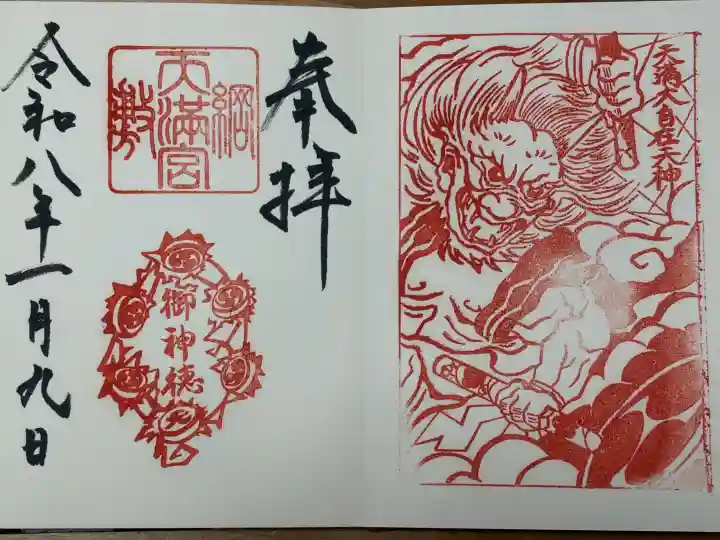 天満大自在天神
奉拝
綱
天満宮
敷
御神徳
令和八年一月九日